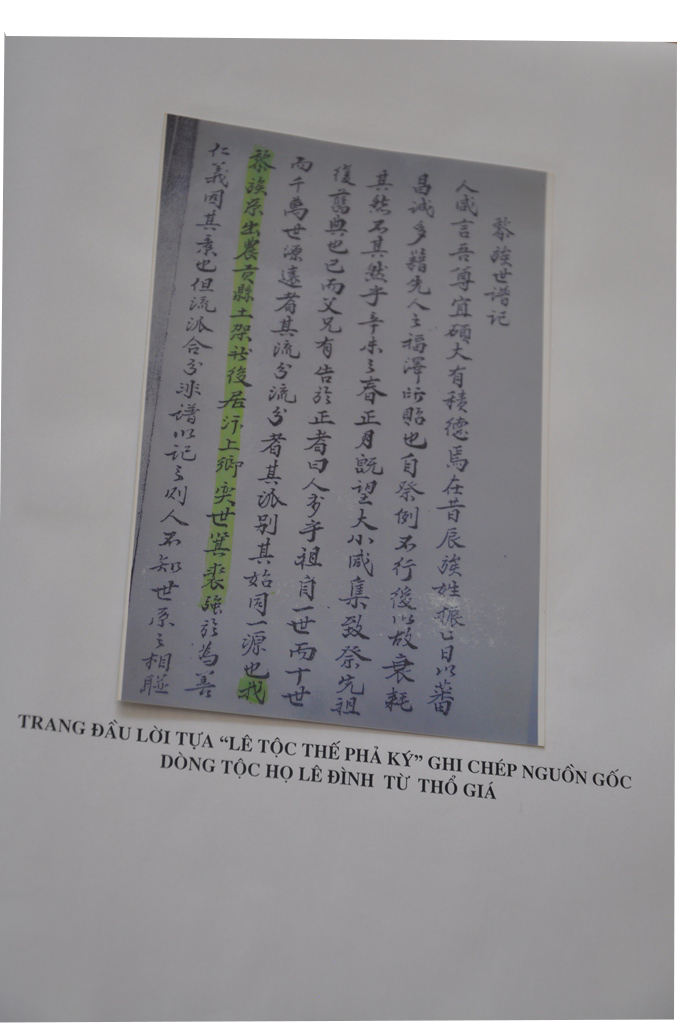 黎族世譜記
人咸言吾尊宜碩大有積德焉在昔辰族姓振〻日以蕃
昌誠多藉先人之福澤所貽也自祭例不行後以故衰耗
其然不其然乎辛未之春正月既望大小咸集致祭先祖
復舊典也已而父兄有告於正者曰人勿乎祖自一世而十世
而千萬世源遠者其流分流分者其派別其始同一源也我
黎族原出農貢縣土架社後居汴上鄉奕世箕裘強於為善
仁義因其素也但流派合分非譜以記之則人不知世系之相聯
TRANG ĐẦU LỜI TỰA “LÊ TỘC THẾ PHẢ KÝ” GHI CHÉP NGUỒN GỐC
DÒNG TỘC HỌ LÊ ĐÌNH TỪ THỔ GIÁ